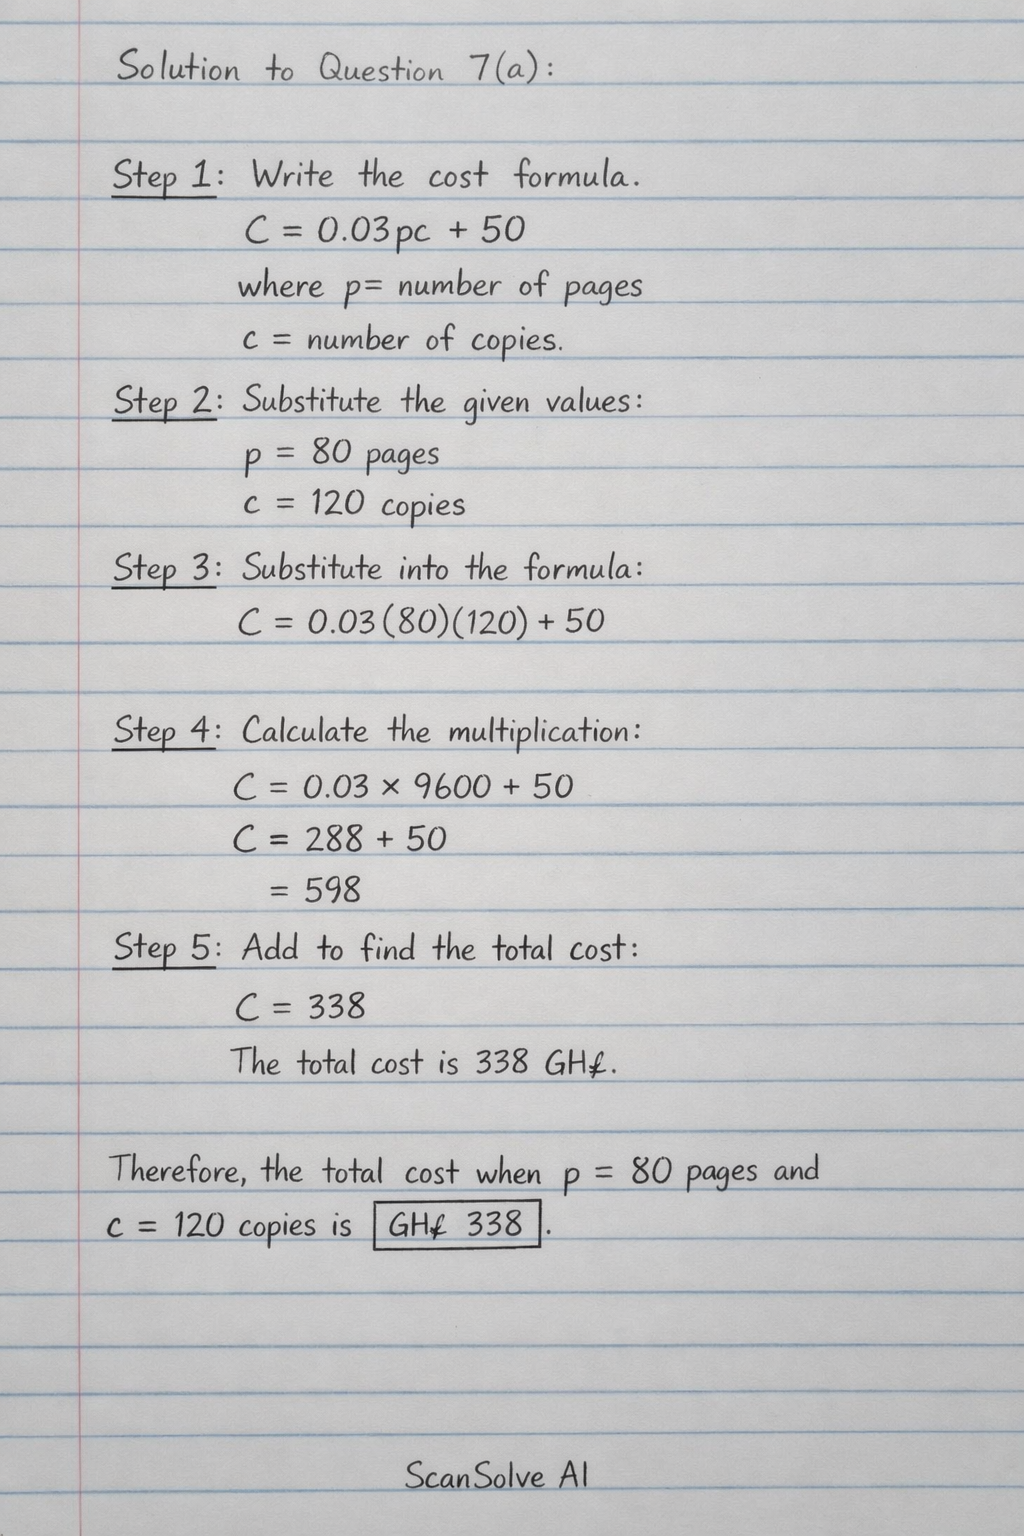 Solution to Question 7(a):
Step 1: Write the cost formula.
C = 0.03pc + 50
where p= number of pages
c = number of copies.
Step 2: Substitute the given values:
p = 80 pages
c = 120 copies
Step 3: Substitute into the formula:
C = 0.03(80)(120) + 50
Step 4: Calculate the multiplication:
C = 0.03 × 9600 + 50
C = 288 + 50
= 598
Step 5: Add to find the total cost:
C = 338
The total cost is 338 GH₵.
Therefore, the total cost when p = 80 pages and
c = 120 copies is GH₵ 338.
ScanSolve AI